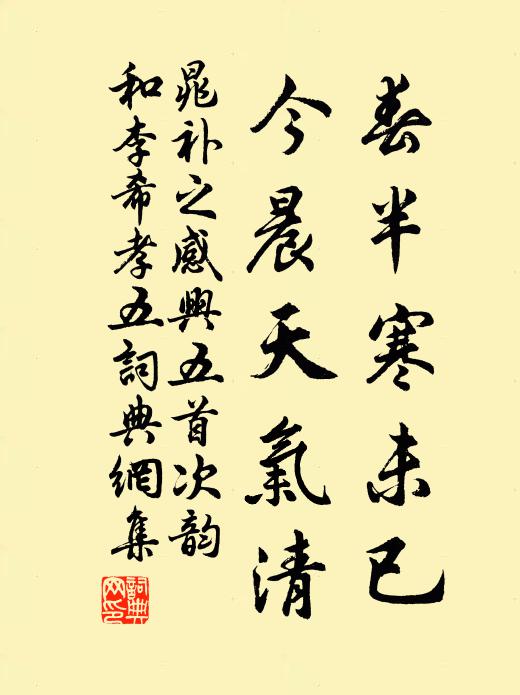 春半寒未已
今晨天氣清
晁補之感興五首次韵
和李希孝五詞典網集
詞典
网印